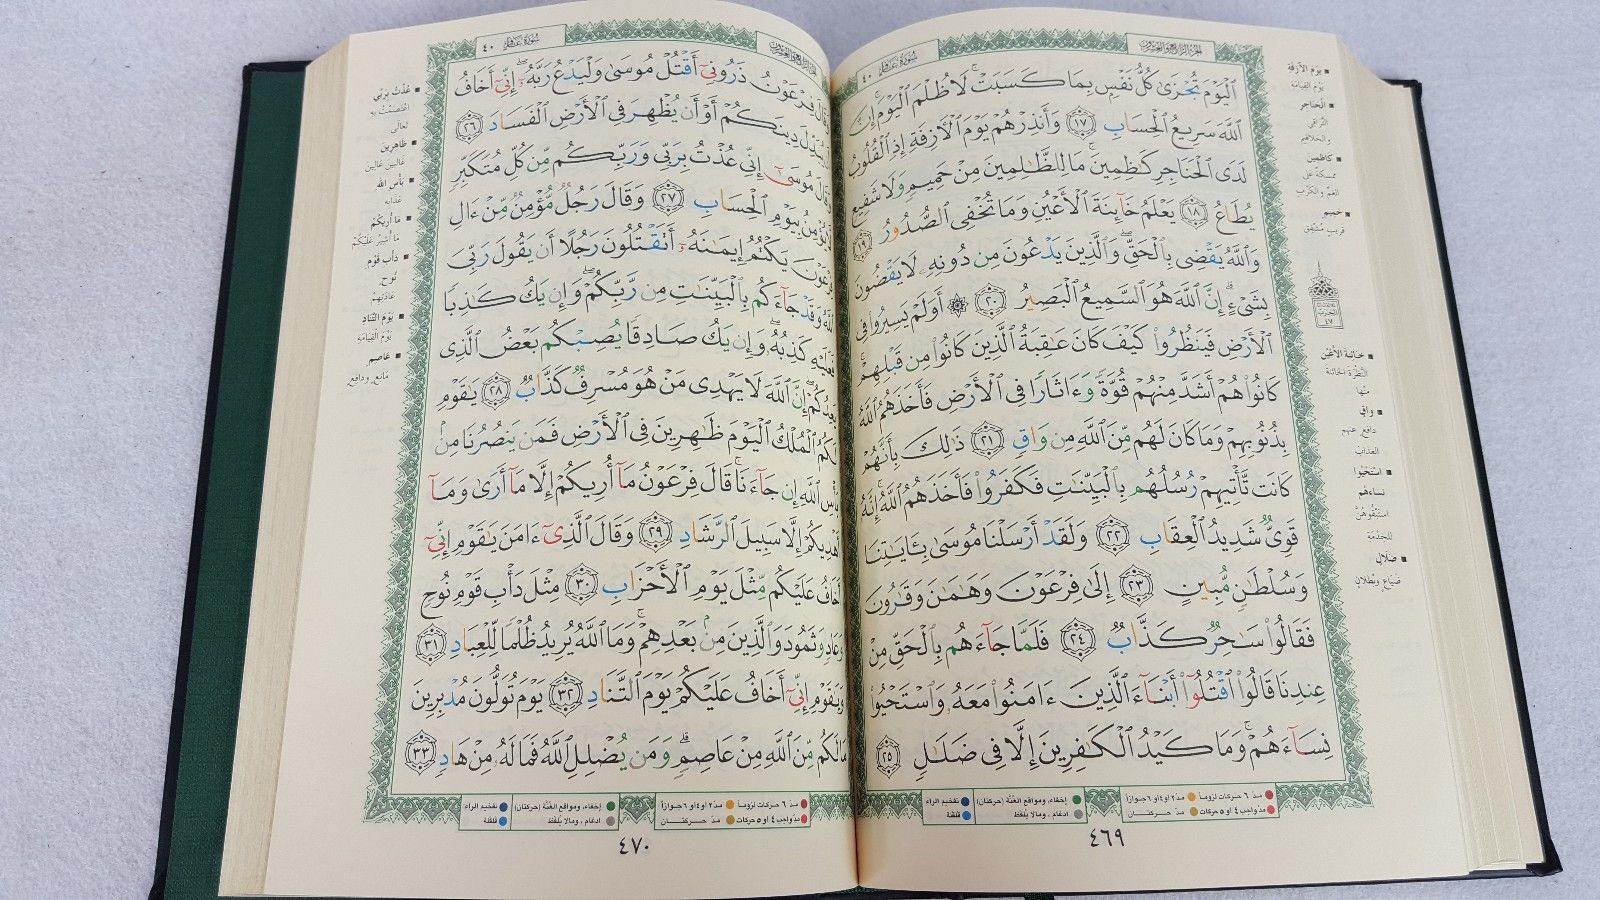 سورة غافر ٤٠
الجزء الرابع والعشرون
ٱلۡيَوۡمَ تُجۡزَىٰ كُلُّ نَفۡسِۭ بِمَا كَسَبَتۡۚ لَا ظُلۡمَ ٱلۡيَوۡمَۚ إِنَّ
ٱللَّهَ سَرِيعُ ٱلۡحِسَابِ ١٧ وَأَنذِرۡهُمۡ يَوۡمَ ٱلۡأٓزِفَةِ إِذِ ٱلۡقُلُوبُ
لَدَى ٱلۡحَنَاجِرِ كَٰظِمِينَۚ مَا لِلظَّٰلِمِينَ مِنۡ حَمِيمٖ وَلَا شَفِيعٖ
يُطَاعُ ١٨ يَعۡلَمُ خَآئِنَةَ ٱلۡأَعۡيُنِ وَمَا تُخۡفِي ٱلصُّدُورُ ١٩
وَٱللَّهُ يَقۡضِي بِٱلۡحَقِّۖ وَٱلَّذِينَ يَدۡعُونَ مِن دُونِهِۦ لَا يَقۡضُونَ
بِشَيۡءٍۗ إِنَّ ٱللَّهَ هُوَ ٱلسَّمِيعُ ٱلۡبَصِيرُ ٢٠ ۞ أَوَلَمۡ يَسِيرُواْ فِي
ٱلۡأَرۡضِ فَيَنظُرُواْ كَيۡفَ كَانَ عَٰقِبَةُ ٱلَّذِينَ كَانُواْ مِن قَبۡلِهِمۡۚ
كَانُواْ هُمۡ أَشَدَّ مِنۡهُمۡ قُوَّةٗ وَءَاثَارٗا فِي ٱلۡأَرۡضِ فَأَخَذَهُمُ ٱللَّهُ
بِذُنُوبِهِمۡ وَمَا كَانَ لَهُم مِّنَ ٱللَّهِ مِن وَاقٖ ٢١ ذَٰلِكَ بِأَنَّهُمۡ
كَانَت تَّأۡتِيهِمۡ رُسُلُهُم بِٱلۡبَيِّنَٰتِ فَكَفَرُواْ فَأَخَذَهُمُ ٱللَّهُۚ إِنَّهُۥ
قَوِيّٞ شَدِيدُ ٱلۡعِقَابِ ٢٢ وَلَقَدۡ أَرۡسَلۡنَا مُوسَىٰ بِـَٔايَٰتِنَا
وَسُلۡطَٰنٖ مُّبِينٍ ٢٣ إِلَىٰ فِرۡعَوۡنَ وَهَٰمَٰنَ وَقَٰرُونَ
فَقَالُواْ سَٰحِرٞ كَذَّابٞ ٢٤ فَلَمَّا جَآءَهُم بِٱلۡحَقِّ مِنۡ
عِندِنَا قَالُواْ ٱقۡتُلُوٓاْ أَبۡنَآءَ ٱلَّذِينَ ءَامَنُواْ مَعَهُۥ وَٱسۡتَحۡيُواْ
نِسَآءَهُمۡۚ وَمَا كَيۡدُ ٱلۡكَٰفِرِينَ إِلَّا فِي ضَلَٰلٖ ٢٥
يوم الآزفة
يوم القيامة
الحناجر
التراقي
والحلاقيم
كاظمين
ممسكة على
الغم والكرب
حميم
قريب مشفق
خائنة الأعين
النظرة الخائنة
منها
واق
دافع عنهم
العذاب
استحيوا
نساءهم
استبقوهن
للخدمة
ضلال
ضياع وبطلان
مدّ ٦ حركات لزوماً
مدّ ٢ او ٤ او ٦ جوازاً
مدّ واجب ٤ او ٥ حركات
مدّ حركتان
إخفاء، ومواقع الغُنَّة (حركتان)
ادغام ، ومالا يُلفَظ
تفخيم الراء
قلقلة
٤٦٩
سورة غافر ٤٠
الجزء الرابع والعشرون
وَقَالَ فِرۡعَوۡنُ ذَرُونِيٓ أَقۡتُلۡ مُوسَىٰ وَلۡيَدۡعُ رَبَّهُۥٓۖ إِنِّيٓ أَخَافُ
أَن يُبَدِّلَ دِينَكُمۡ أَوۡ أَن يُظۡهِرَ فِي ٱلۡأَرۡضِ ٱلۡفَسَادَ ٢٦
وَقَالَ مُوسَىٰٓ إِنِّي عُذۡتُ بِرَبِّي وَرَبِّكُم مِّن كُلِّ مُتَكَبِّرٖ
لَّا يُؤۡمِنُ بِيَوۡمِ ٱلۡحِسَابِ ٢٧ وَقَالَ رَجُلٞ مُّؤۡمِنٞ مِّنۡ ءَالِ
فِرۡعَوۡنَ يَكۡتُمُ إِيمَٰنَهُۥٓ أَتَقۡتُلُونَ رَجُلًا أَن يَقُولَ رَبِّيَ
ٱللَّهُ وَقَدۡ جَآءَكُم بِٱلۡبَيِّنَٰتِ مِن رَّبِّكُمۡۖ وَإِن يَكُ كَٰذِبٗا
فَعَلَيۡهِ كَذِبُهُۥۖ وَإِن يَكُ صَادِقٗا يُصِبۡكُم بَعۡضُ ٱلَّذِي
يَعِدُكُمۡۖ إِنَّ ٱللَّهَ لَا يَهۡدِي مَنۡ هُوَ مُسۡرِفٞ كَذَّابٞ ٢٨ يَٰقَوۡمِ
لَكُمُ ٱلۡمُلۡكُ ٱلۡيَوۡمَ ظَٰهِرِينَ فِي ٱلۡأَرۡضِ فَمَن يَنصُرُنَا مِنۢ
بَأۡسِ ٱللَّهِ إِن جَآءَنَاۚ قَالَ فِرۡعَوۡنُ مَآ أُرِيكُمۡ إِلَّا مَآ أَرَىٰ وَمَآ
أَهۡدِيكُمۡ إِلَّا سَبِيلَ ٱلرَّشَادِ ٢٩ وَقَالَ ٱلَّذِيٓ ءَامَنَ يَٰقَوۡمِ إِنِّيٓ
أَخَافُ عَلَيۡكُم مِّثۡلَ يَوۡمِ ٱلۡأَحۡزَابِ ٣٠ مِثۡلَ دَأۡبِ قَوۡمِ نُوحٖ
وَعَادٖ وَثَمُودَ وَٱلَّذِينَ مِنۢ بَعۡدِهِمۡۚ وَمَا ٱللَّهُ يُرِيدُ ظُلۡمٗا لِّلۡعِبَادِ ٣١
وَيَٰقَوۡمِ إِنِّيٓ أَخَافُ عَلَيۡكُمۡ يَوۡمَ ٱلتَّنَادِ ٣٢ يَوۡمَ تُوَلُّونَ مُدۡبِرِينَ
مَا لَكُم مِّنَ ٱللَّهِ مِنۡ عَاصِمٖۗ وَمَن يُضۡلِلِ ٱللَّهُ فَمَا لَهُۥ مِنۡ هَادٖ ٣٣
عذت بربي
اعتصمت به
تعالى
ظاهرين
غالبين عالين
بأس الله
عذابه
ما أريكم
ما أشير عليكم
دأب قوم
نوح
عادتهم
يوم التناد
يوم القيامة
عاصم
مانع ودافع
مدّ ٦ حركات لزوماً
مدّ ٢ او ٤ او ٦ جوازاً
مدّ واجب ٤ او ٥ حركات
مدّ حركتان
إخفاء، ومواقع الغُنَّة (حركتان)
ادغام ، ومالا يُلفَظ
تفخيم الراء
قلقلة
٤٧٠